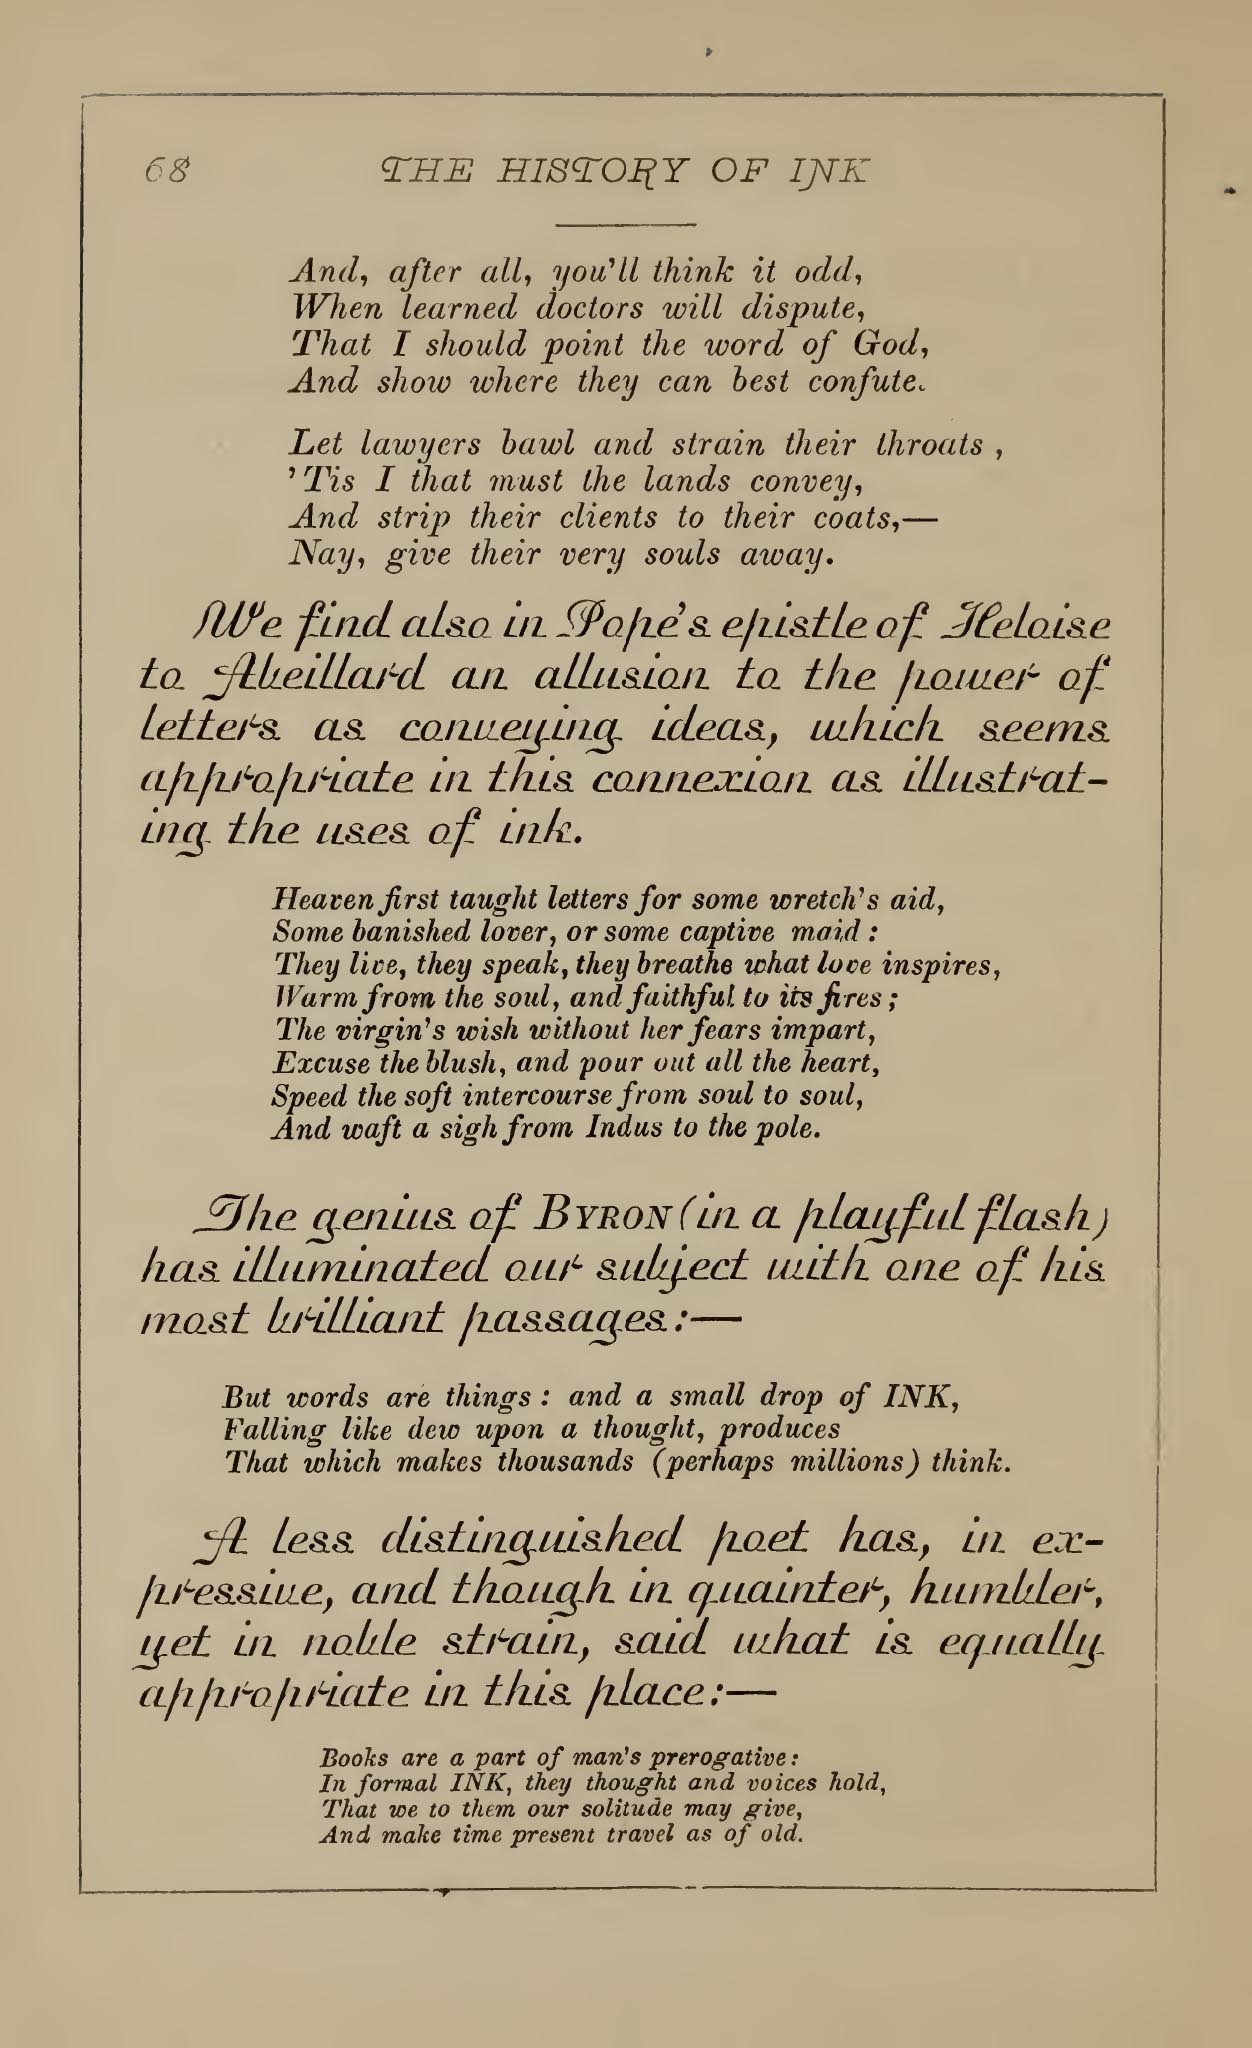 68 THE HISTORY OF INK
And, after all, you'll think it odd,
When learned doctors will dispute,
That I should point the word of God,
And show where they can best confute.
Let lawyers bawl and strain their throats ,
'Tis I that must the lands convey,
And strip their clients to their coats,—
Nay, give their very souls away.
We find also in Pope's epistle of Heloise
to Abeillard an allusion to the power of
letters as conveying ideas, which seems
appropriate in this connexion as illustrat-
ing the uses of ink.
Heaven first taught letters for some wretch's aid,
Some banished lover, or some captive maid :
They live, they speak, they breathe what love inspires,
Warm from the soul, and faithful to its fires ;
The virgin's wish without her fears impart,
Excuse the blush, and pour out all the heart,
Speed the soft intercourse from soul to soul,
And waft a sigh from Indus to the pole.
The genius of BYRON (in a playful flash)
has illuminated our subject with one of his
most brilliant passages:—
But words are things : and a small drop of INK,
Falling like dew upon a thought, produces
That which makes thousands (perhaps millions) think.
A less distinguished poet has, in ex-
pressive, and though in quainter, humbler,
yet in noble strain, said what is equally
appropriate in this place:—
Books are a part of man's prerogative:
In formal INK, they thought and voices hold,
That we to them our solitude may give,
And make time present travel as of old.